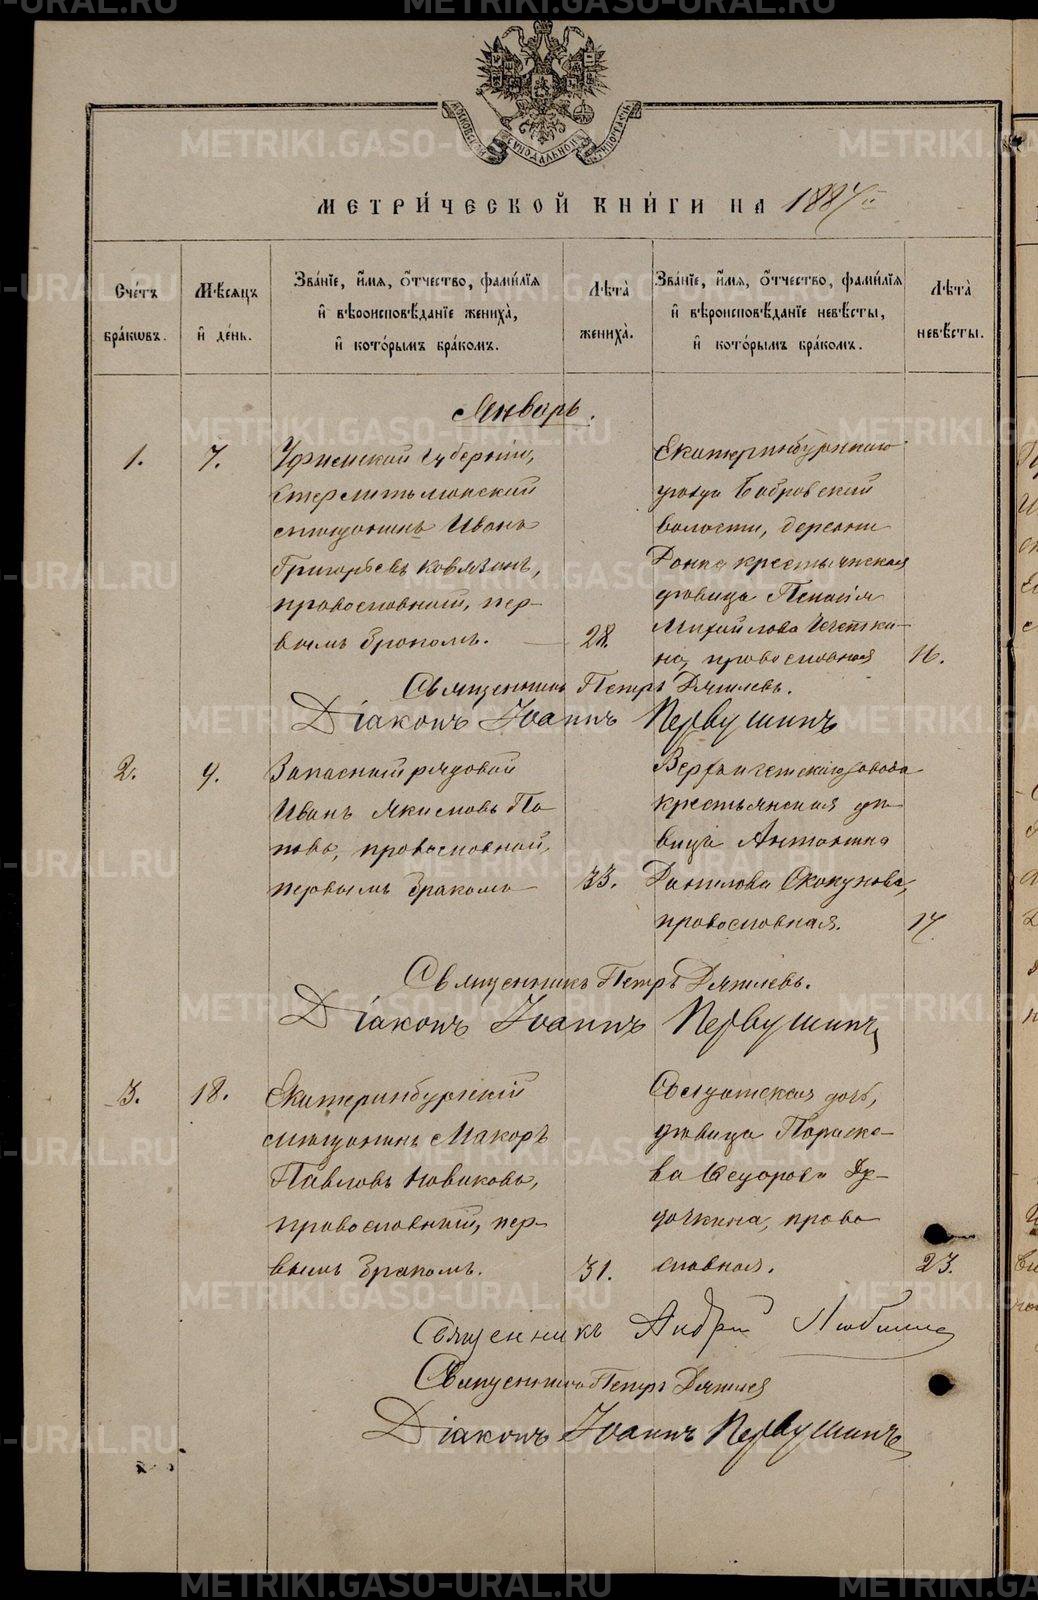 МОСКОВСКОЙ СѴНОДАЛЬНОЙ ТИПОГРАФІИ
МЕТРИ́ЧЕСКОЙ КНИ́ГИ НА 1887 г.
Сче́тъ бра́кωвъ.
Мѣ́сяцъ и҆ де́нь.
Зва́нїе, и҆́мя, ѻ҆́тчество, фами́лїя
и҆ вѣроисповѣ́данїе жениха̀,
и҆ кото́рымъ бра́комъ.
Лѣ́та̀ жениха̀.
Зва́нїе, и҆́мя, ѻ҆́тчество, фами́лїя
и҆ вѣроисповѣ́данїе невѣ́сты,
и҆ кото́рымъ бра́комъ.
Лѣ́та̀ невѣ́сты.
Январь.
1.
7.
Уфимской губерніи,
Стерлитамакскій
мѣщанинъ Иванъ
Григорьевъ Ковязинъ,
православный, пер-
вымъ бракомъ.
28.
Екатеринбургскаго
уѣзда Бобровской
волости, деревни
крестьянская
дѣвица Пелагія
Михайлова
на, православная
16.
Священникъ Петръ Дягилевъ.
Діаконъ Іоаннъ Первушинъ
2.
9.
Запасный рядовой
Иванъ Якимовъ По-
повъ, православный,
первымъ бракомъ
33.
Верхъ Исетскаго завода
крестьянская дѣ-
вица Антонина
Данилова Скокунова,
православная.
17.
Священникъ Петръ Дягилевъ.
Діаконъ Іоаннъ Первушинъ
3.
18.
Екатеринбургскій
мѣщанинъ Макаръ
Павловъ Новиковъ,
православный, пер-
вымъ бракомъ.
31.
Солдатская дочь,
дѣвица Параске-
ва Ѳедорова
православная.
23.
Священникъ Андрей
Священникъ Петръ Дягилев
Діаконъ Іоаннъ Первушинъ
METRIKI.GASO-URAL.RU